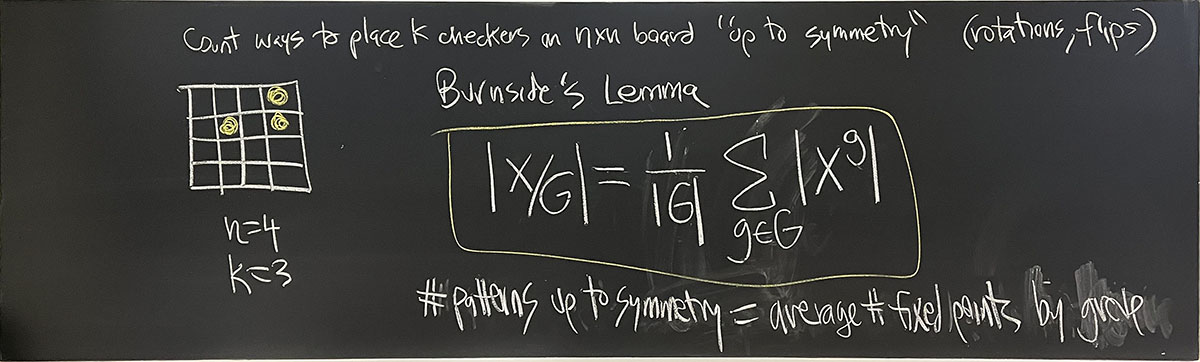 Count ways to place k checkers on nxn board "up to symmetry" (rotations, flips)
Burnside's Lemma
|X/G| = 1/|G| ∑_{g∈G} |X^g|
n=4
k=3
# patterns up to symmetry = average # fixed points by group